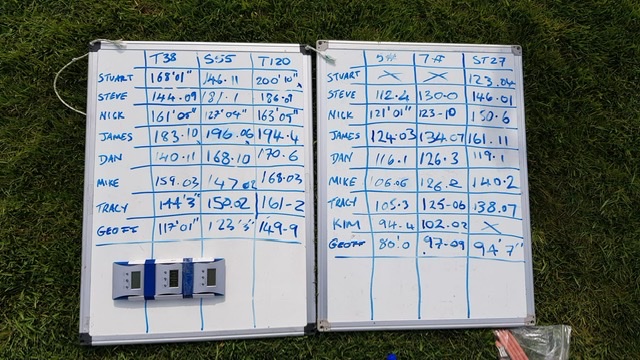 T38 S55 T120
STUART 168'01" 146.11 200'10"
STEVE 144.09 181.1 186.01
NICK 161'05" 167'04" 163'05"
JAMES 183.10 196.06 194.4
DAN 140.11 168.10 170.6
MIKE 159.03 147.02 168.03
TRACY 144'3" 150.02 161-2
GEOFF 117'01" 123'3" 149-9
5# 7# ST27
STUART X X 123.04
STEVE 112.4 130.0 146.01
NICK 121'01" 123-10 150.6
JAMES 124.03 134.07 161.11
DAN 116.1 126.3 119.1
MIKE 106.06 126.2 140.2
TRACY 105.3 125-06 138.07
KIM 94.4 102.02 X
GEOFF 80'0 97-09 94'7"